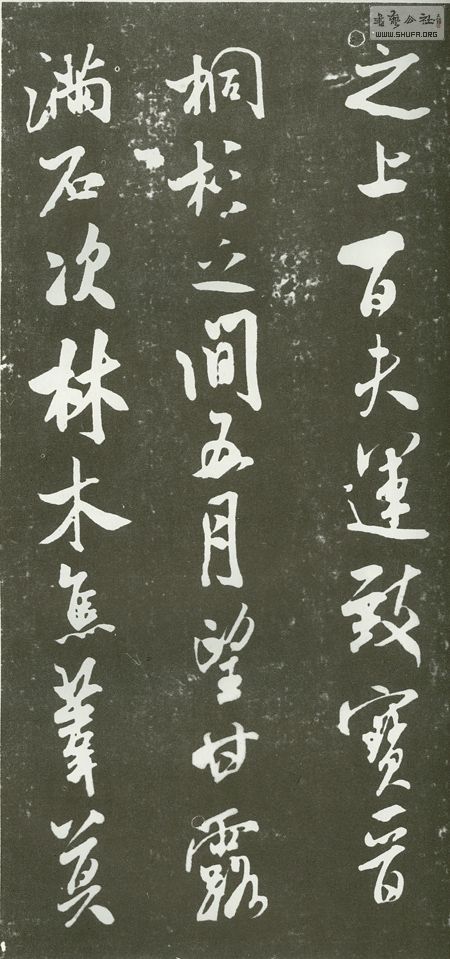 書藝公社
WWW.SHUFA.ORG
之上百夫運致寶晉
桐杉之間五月望甘露
滿石次林木焦葦莫